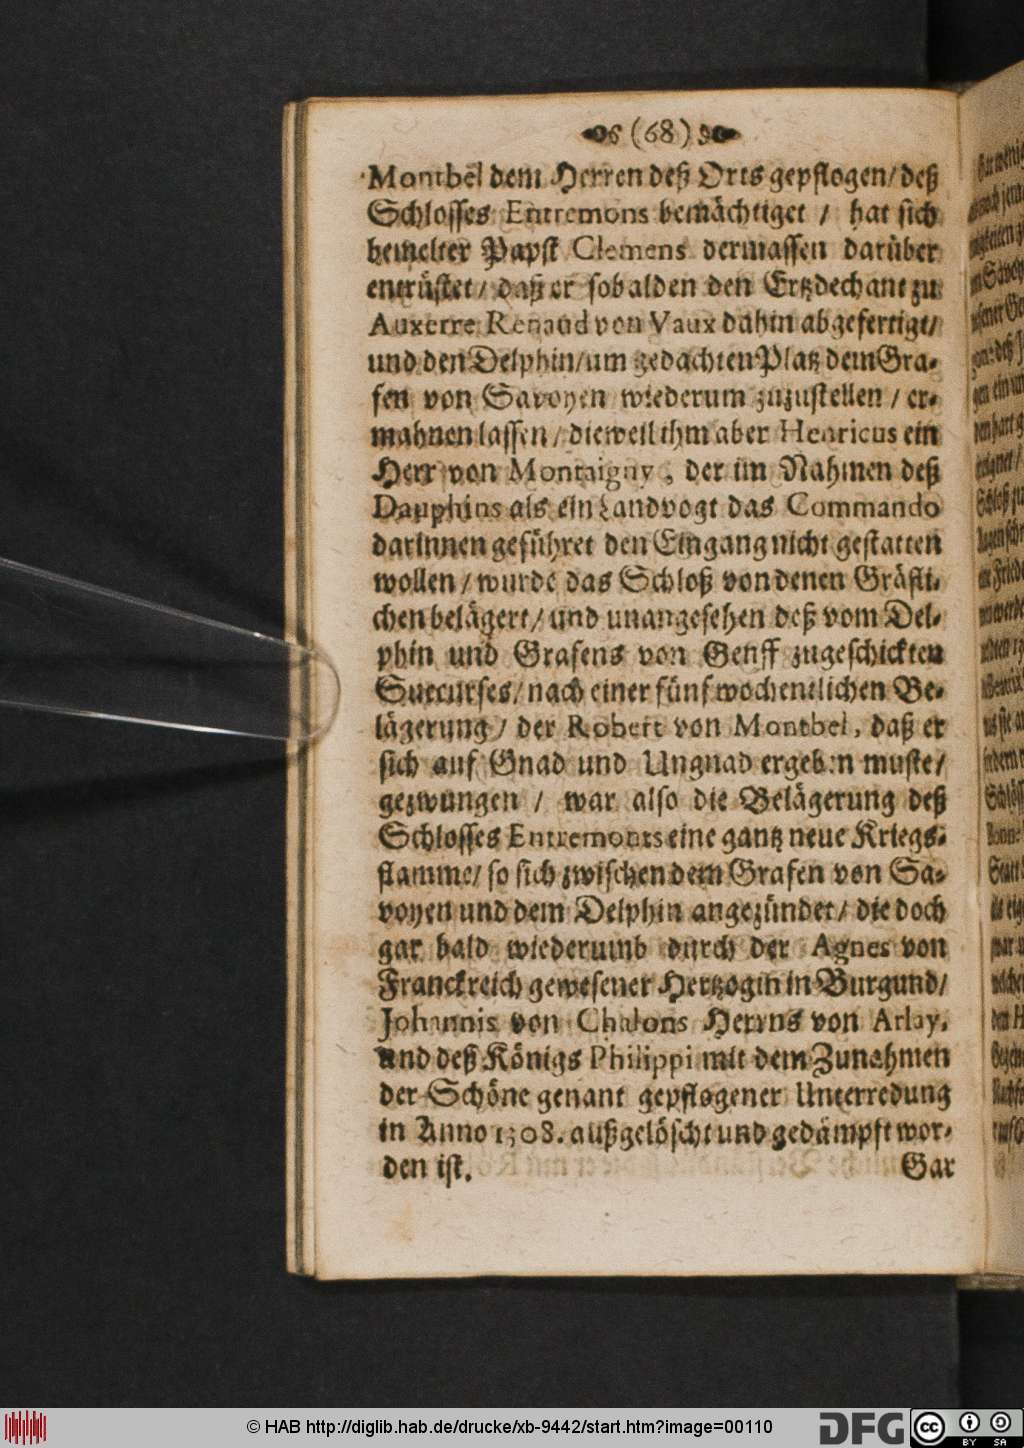 (68)
Montbel dem Herren deß Orts gepflogen/ deß
Schlosses Entremons bemächtiget / hat sich
bemelter Papst Clemens dermassen darüber
entrüstet / daß er sobalden den Ertzdechant zu
Auxerre Renaud von Vaux dahin abgefertigt/
und den Delphin/um gedachten Platz dem Gra-
fen von Savoyen wiederum zuzustellen / er-
mahnen lassen / dieweil ihm aber Henricus ein
Herr von Montaigny, der im Nahmen deß
Dauphins als ein Landvogt das Commando
darinnen geführet den Eingang nicht gestatten
wollen / wurde das Schloß von denen Gräfli-
chen belägert/ und unangesehen deß vom Del-
phin und Grafens von Genff zugeschickten
Succurses/ nach einer fünf wochentlichen Be-
lägerung / der Robert von Montbel, daß er
sich auf Gnad und Ungnad ergeben muste/
gezwungen / war also die Belägerung deß
Schlosses Entremonts eine gantz neue Kriegs-
flamme/ so sich zwischen dem Grafen von Sa-
voyen und dem Delphin angezündet/ die doch
gar bald wiederumb durch der Agnes von
Franckreich gewesener Hertzogin in Burgund/
Johannis von Chalons Herrns von Arlay,
und deß Königs Philippi mit dem Zunahmen
der Schöne genant gepflogener Unterredung
in Anno 1308. außgelöscht und gedämpft wor-
den ist.
Gar
© HAB http://diglib.hab.de/drucke/xb-9442/start.htm?image=00110
DFG
cc
BY SA